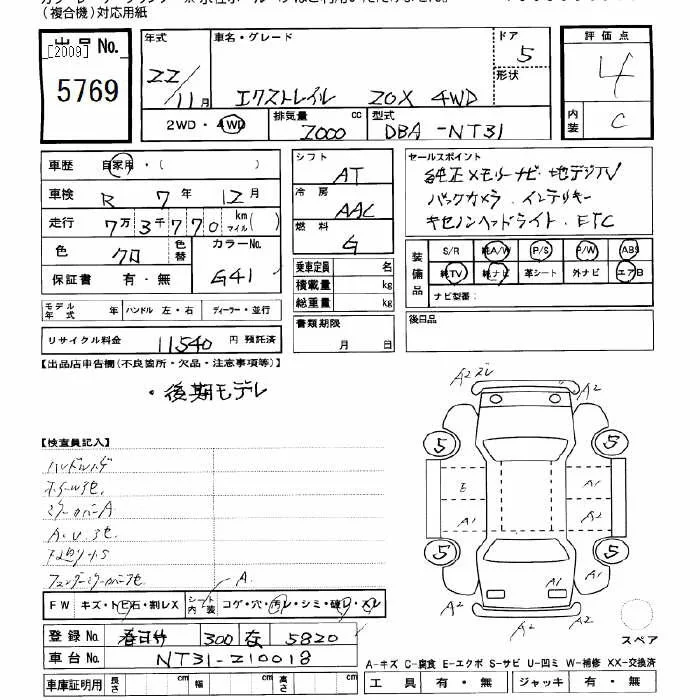 (複合機)対応用紙
出品 No.
[2009]
5769
年式 車名・グレード ドア 評価点
22/11月 エクストレイル 20X 4WD 5 4
形状
2WD・4WD 排気量 2000 cc 型式 DBA-NT31 内装 C
車歴 自家用・( )
車検 R 7年 12月
走行 7万3千770 km マイル( )
色 クロ 色替 カラーNo. G41
保証書 有・無
シフト AT
冷房 AAC
燃料 G
乗車定員 名
積載量 kg
総重量 kg
書類期限
月 日
セールスポイント
純正メモリーナビ・地デジTV
バックカメラ．インテリキー
キセノンヘッドライト．ETC
装備品 S/R 純A/W P/S P/W ABS
純TV 純ナビ 革シート 外ナビ エアB
ナビ型番：
後日品
モデル年式 年 ハンドル 左・右 ディーラー・並行
リサイクル料金 11540 円 預託済
【出品店申告欄(不良箇所・欠品・注意事項等)】
・後期モデル
【検査員記入】
FW キズ・トビ石・割レX シート内装 コゲ・穴・汚レ・シミ・破レ・スレ
A.
A2 ズレ
A2
A2
5 5
E A1
A1 A1
A2
5 5
A2
A1 A1
A2 A2
スペア
登録 No. 春日井 300 5820
車台 No. NT31-210018
車庫証明用 長さ cm 幅 cm 高さ cm
A-キズ C-腐食 E-エクボ S-サビ U-凹ミ W-補修 XX-交換済
工具 有・無 ジャッキ 有・無